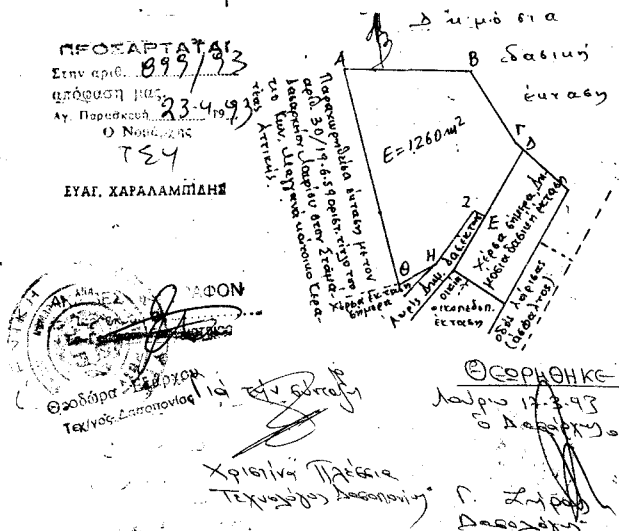 ΠΡΟΣΑΡΤΑΤΑΙ
Στην αριθ. 899/93
απόφαση μας
Αγ. Παρασκευή 23-4-1993
Ο Νομάρχης
ΤΣΥ
ΕΥΑΓ. ΧΑΡΑΛΑΜΠΙΔΗΣ
Δημόσια
δασική
έκταση
Α
Β
Γ
Δ
Ε
Ζ
Η
Θ
Ε=1260 m²
Παραχωρηθείσα έκταση με τον
αριθ. 30/19-6-59 οριστ. τίτλο του
Δασαρχείου Λαυρίου στον Σταμα-
τιο Κων. Μαγγανά κάτοικο Κερα-
τέας Αττικής.
Χέρσα έκταση
σήμερα
Λωρίς Δημ. δασ. έκτασ
οικία
οικοπεδοπ.
έκταση
χέρσα σήμερα, Δη-
μόσια δασική έκταση
οδός Λάρισας
(ασφαλτος)
ΑΚΡΙΒΕΣ ΑΦΟΝ
Θεοδώρα Εξάρχου
Τεχ/γος Δασοπονίας
Για την σύνταξη
Χριστίνα Πλέσσια
Τεχνολόγος Δασοπονίας
ΘΕΩΡΗΘΗΚΕ
Λαύριο 17-3-93
Ο Δασάρχης
Γ. Σπύρος
Δασολόγος